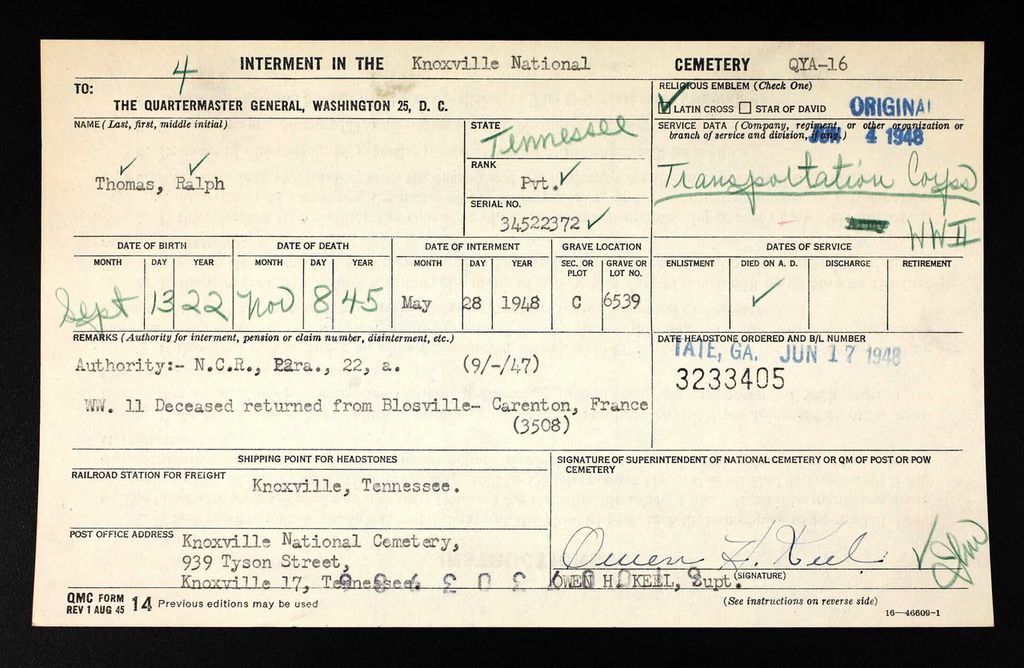 4
INTERMENT IN THE Knoxville National CEMETERY QYA-16
TO:
THE QUARTERMASTER GENERAL, WASHINGTON 25, D. C.
RELIGIOUS EMBLEM (Check One)
LATIN CROSS STAR OF DAVID
ORIGINAL
NAME (Last, first, middle initial)
Thomas, Ralph
STATE
Tennessee
RANK
Pvt.
SERIAL NO.
34522372
SERVICE DATA (Company, regiment, or other organization or
branch of service and division, if any.)
JUN 4 1948
Transportation Corps
WW II
DATE OF BIRTH DATE OF DEATH DATE OF INTERMENT GRAVE LOCATION DATES OF SERVICE
MONTH DAY YEAR MONTH DAY YEAR MONTH DAY YEAR SEC. OR PLOT GRAVE OR LOT NO. ENLISTMENT DIED ON A. D. DISCHARGE RETIREMENT
Sept 13 22 Nov 8 45 May 28 1948 C 6539
REMARKS (Authority for interment, pension or claim number, disinterment, etc.)
Authority:- N.C.R., Para., 22, a. (9/-/47)
WW. 11 Deceased returned from Blosville- Carenton, France
(3508)
DATE HEADSTONE ORDERED AND B/L NUMBER
TATE, GA. JUN 17 1948
3233405
SHIPPING POINT FOR HEADSTONES
RAILROAD STATION FOR FREIGHT
Knoxville, Tennessee.
POST OFFICE ADDRESS
Knoxville National Cemetery,
939 Tyson Street,
Knoxville 17, Tennessee.
SIGNATURE OF SUPERINTENDENT OF NATIONAL CEMETERY OR QM OF POST OR POW
CEMETERY
Owen H. Keel
OWEN H. KEEL, Supt. (SIGNATURE)
QMC FORM
REV 1 AUG 45 14 Previous editions may be used
(See instructions on reverse side)
16—46609-1